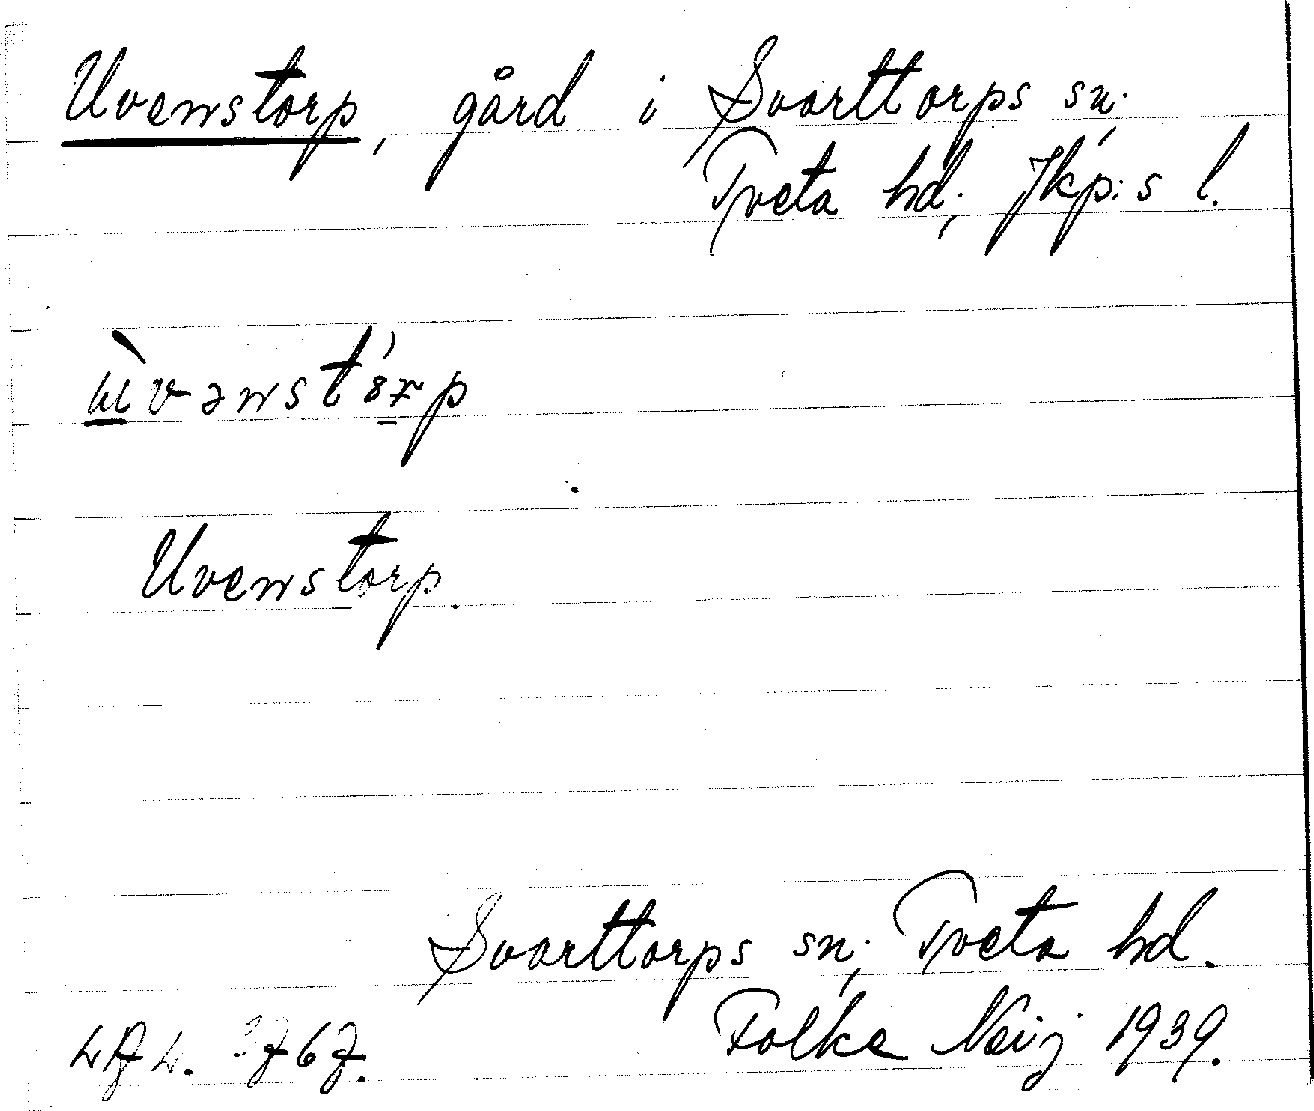 Uvenstorp, gård i Svarttorps sn.
Tveta hd, Jkp:s l.
Uvenstorp.
Svarttorps sn, Tveta hd.
Folke Neij 1939.